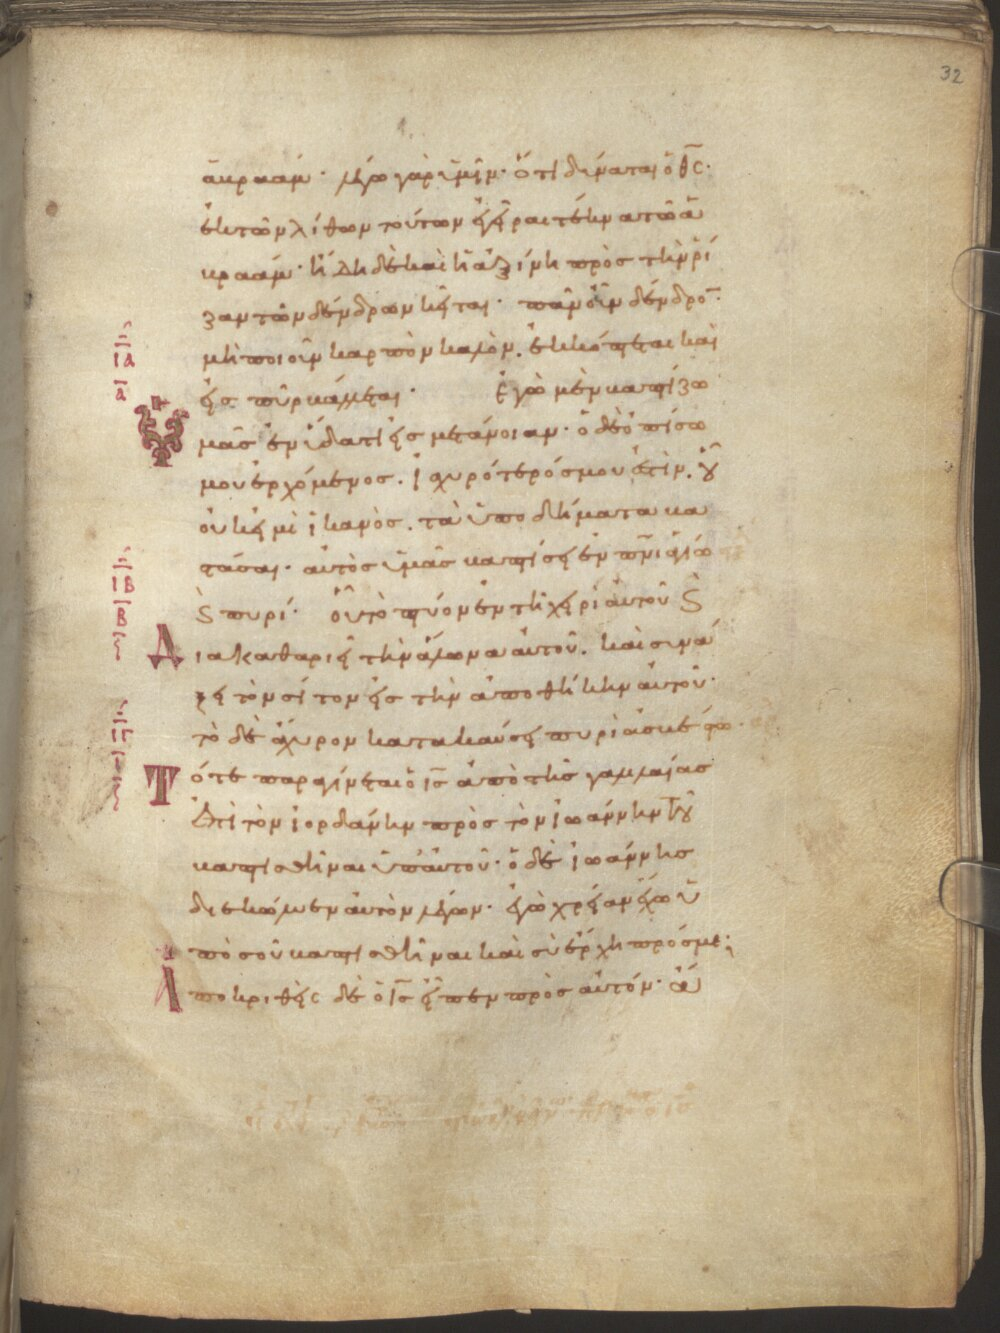 32
ἀβραάμ· λέγω γὰρ ὑμῖν· ὅτι δύναται ὁ θ̅ς̅·
ἐκ τῶν λίθων τούτων ἐγεῖραι τέκνα τῶ ἀ
βραάμ· ἤδη δὲ καὶ ἡ ἀξίνη πρὸς τὴν ῥί
ζαν τῶν δένδρων κεῖται· πᾶν οὖν δένδρο̅·
ΙΑ
μὴ ποιοῦν καρπὸν καλὸν. ἐκκόπτεται καὶ
Α
εἰς πῦρ βάλλεται· ἐγὼ μὲν βαπτίζω
μᾶς ἐν ὕδατι εἰς μετάνοιαν· ὁ δὲ ὀπίσω
μου ἐρχόμενος. ἰσχυρότερός μου ἐστὶν. οὗ
οὐκ εἰμὶ ἱκανὸς. τὰ ὑποδήματα βα
στάσαι· αὐτὸς ὑμᾶς βαπτίσει ἐν πν̅ι ἁγίω
ΙΒ
Β
ϛ πυρί· οὗ τὸ πτύον ἐν τῆ χειρὶ αὐτοῦ ϛ
Διακαθαριεῖ τὴν ἅλωνα αὐτοῦ. καὶ συνά
ξει τὸν σίτον εἰς τὴν ἀποθήκην αὐτοῦ·
ΙΓ
τὸ δὲ ἄχυρον κατακαύσει πυρὶ ἀσβέστω·
Τότε παραγίνεται ὁ ι̅ς̅ ἀπὸ τῆς γαλιλαίας
ἐπὶ τὸν ἰορδάνην πρὸς τὸν ἰωάννην τοῦ
βαπτισθῆναι ὑπ' αὐτοῦ· ὁ δὲ ἰωάννης
διεκώλυεν αὐτὸν λέγων· ἐγὼ χρείαν ἔχω ὑ
πὸ σοῦ βαπτισθῆναι καὶ σὺ ἔρχη πρός με;
Ἀποκριθεὶς δὲ ὁ ι̅ς̅ εἶπεν πρὸς αὐτόν· ἄ